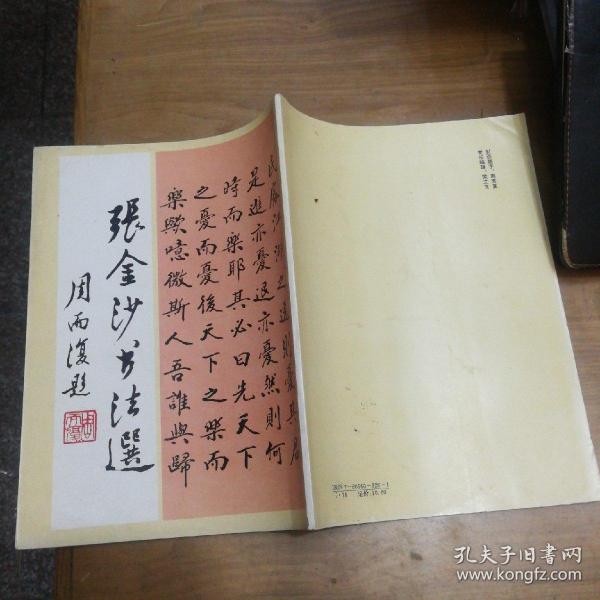 張金沙书法選
周而復題
民處江湖之遠則憂其君
是進亦憂退亦憂然則何
時而樂耶其必曰先天下
之憂而憂後天下之樂而
樂歟噫微斯人吾誰與歸
孔夫子旧书网
www.kongfz.com